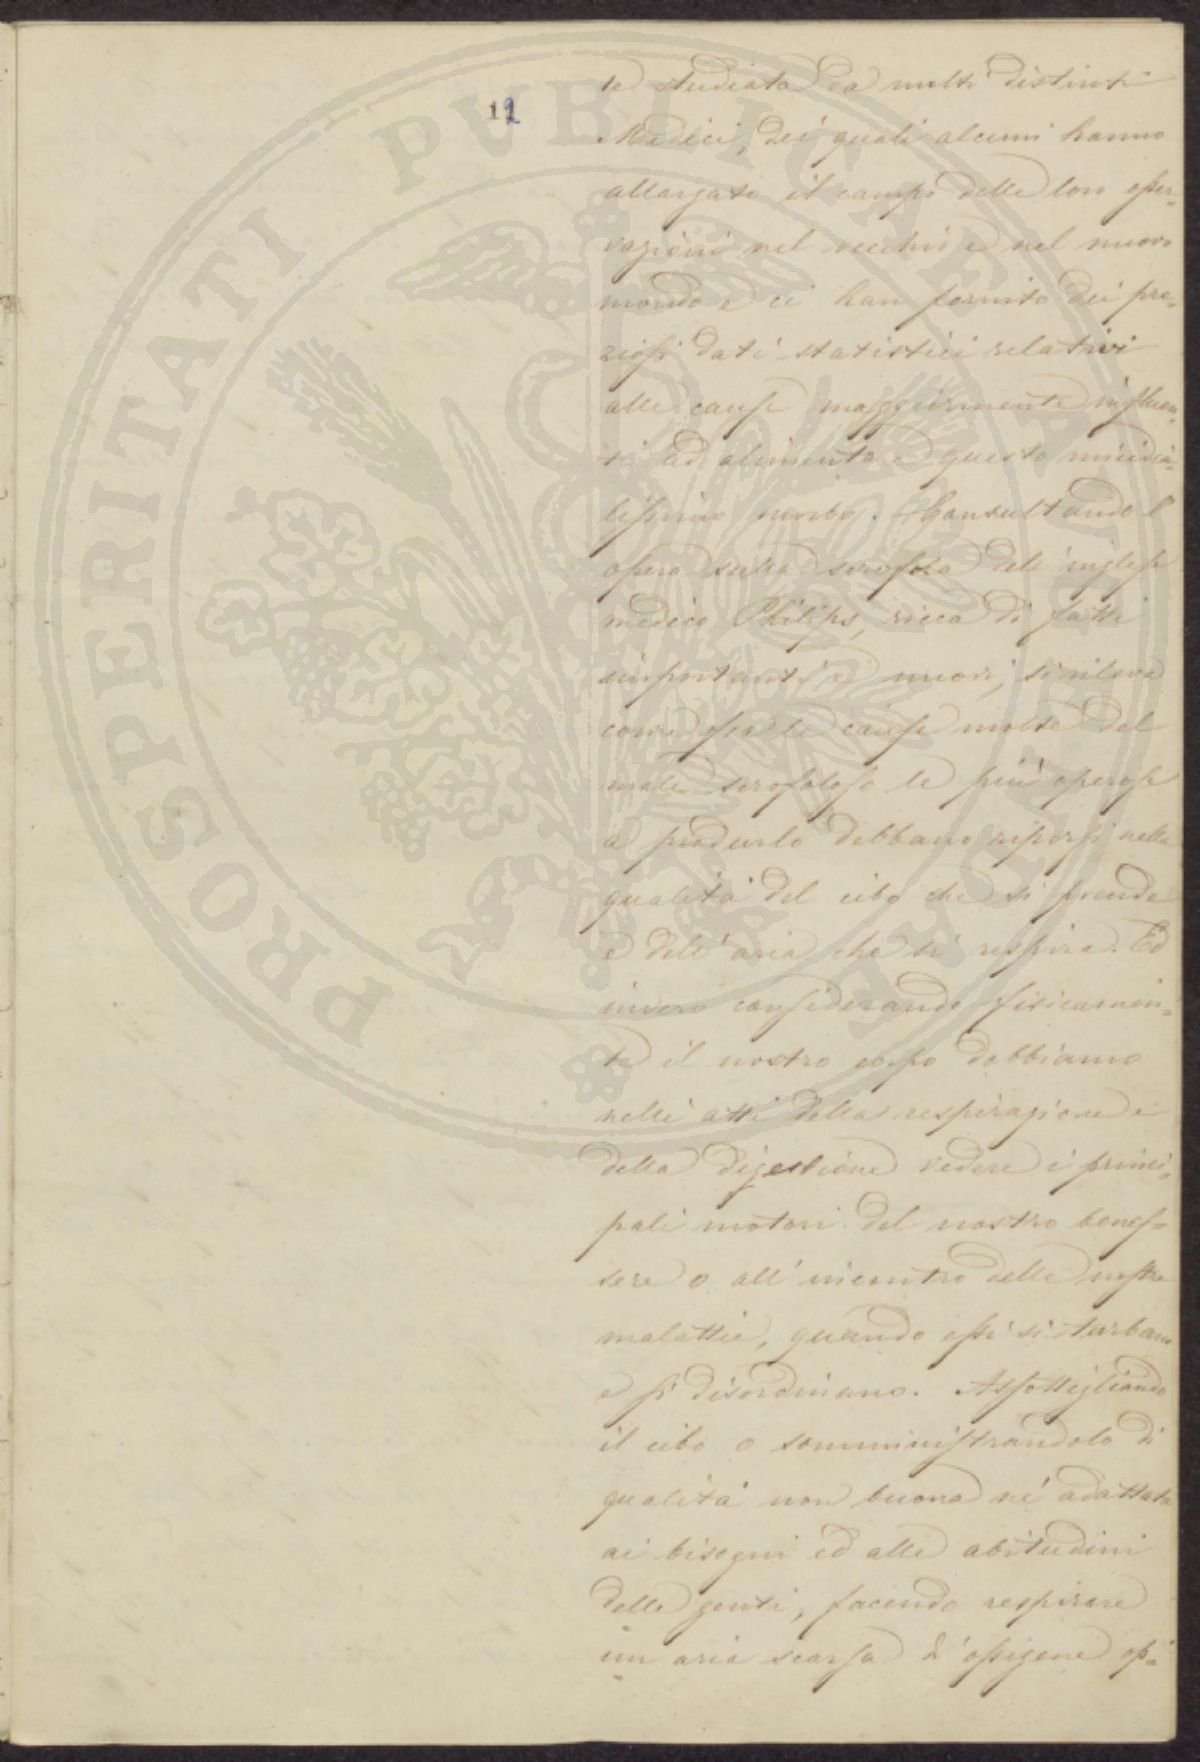 12
te studiata da molti distinti
Medici, dei quali alcuni hanno
allargato il campo delle loro osser-
vazioni nel vecchio e nel nuovo
mondo e ci han fornito dei pre-
ziosi dati statistici relativi
alle cause maggiormente influen-
ti ad alimentare questo micidia-
lissimo morbo. Consultando l
opera sulla scrofola dell'inglese
medico Philips, ricca di fatti
importanti e nuovi, si rileva
come fra le cause molte del
male scrofoloso le più operose
a produrlo debbano riporsi nella
qualità del cibo che si prende
e dell'aria che si respira. Ed
invero considerando fisicamen-
te il nostro corpo dobbiamo
nelli atti della respirazione e
della digestione vedere i princi-
pali motori del nostro benes-
sere o all'incontro delle nostre
malattie, quando essi si turbano
e si disordinano. Assottigliando
il cibo o somministrandolo di
qualità non buona nè adattata
ai bisogni ed alle abitudini
delle genti, facendo respirare
un aria scarsa d'ossigene op-
PROSPERITATI PVBLICAE AVGENDAE